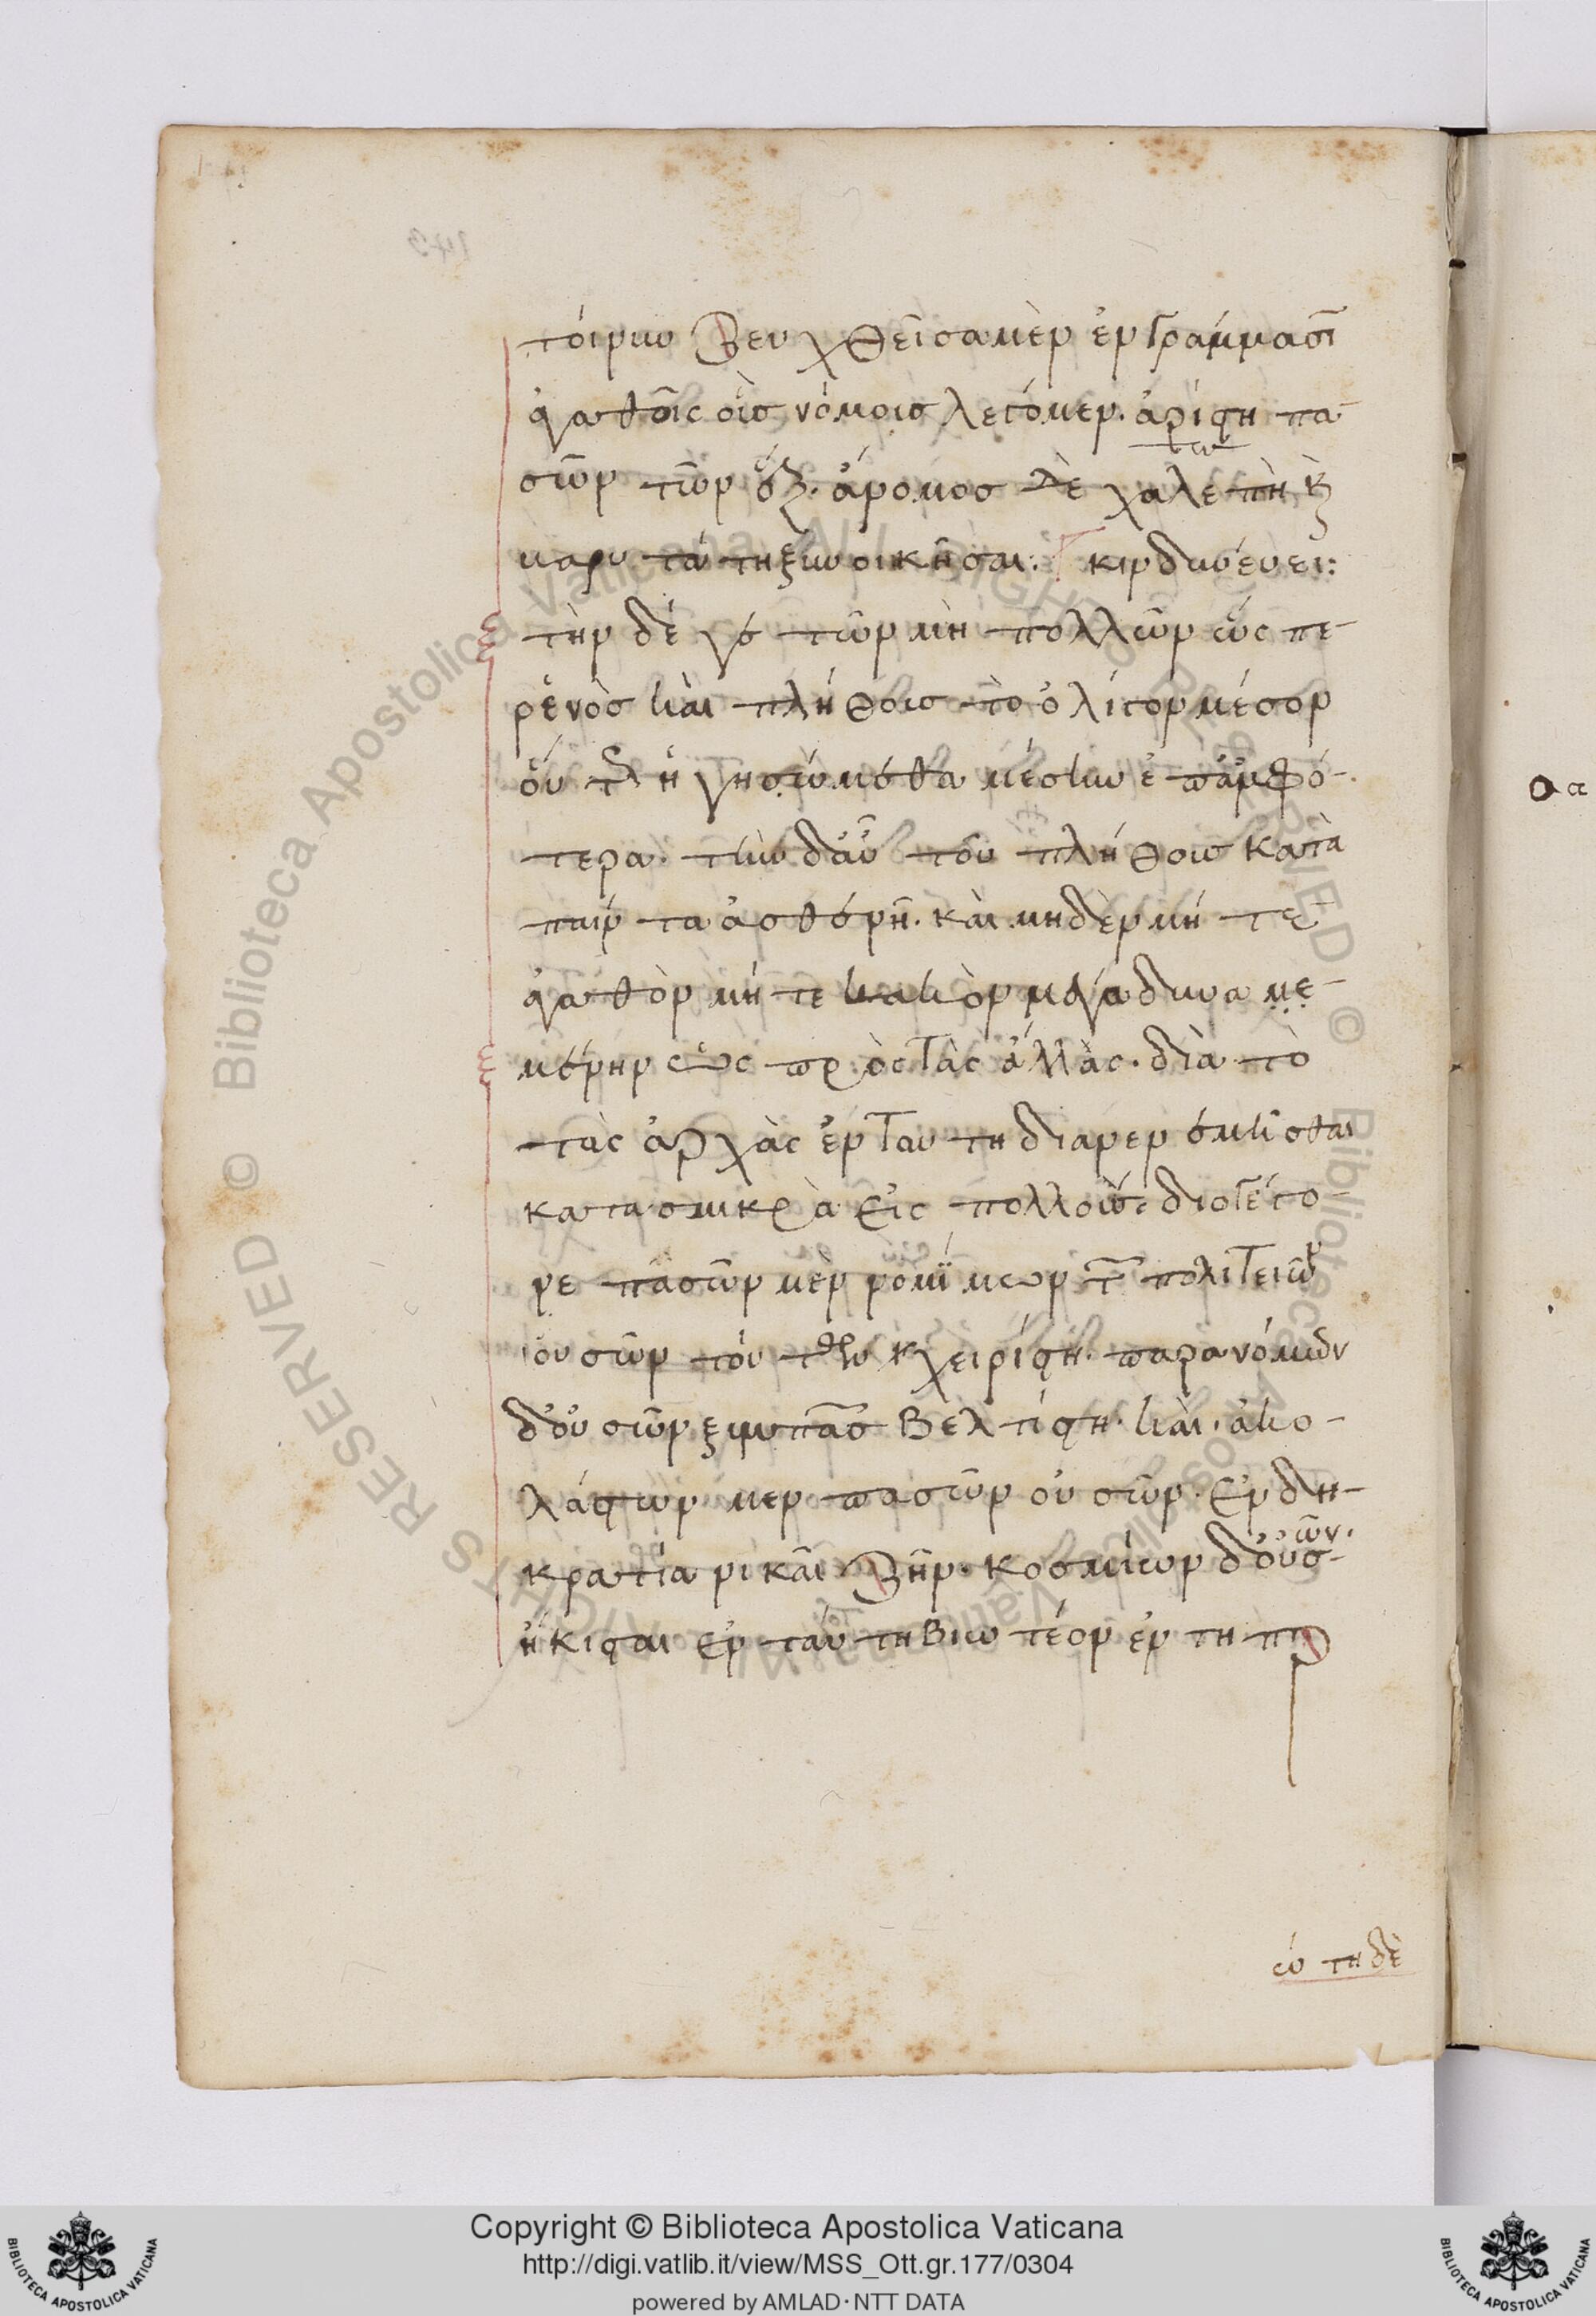 τοίνυν ζευχθεῖσα μὲν ἐν γράμμασιν
ἀγαθοῖς οὓς νόμους λέγομεν. ἀρίστη πα-
σῶν τῶν ἕξ. ἄνομος δὲ χαλεπὴ καὶ
βαρυτάτη ξυνοικῆσαι: κινδυνεύει:
τὴν δέ γε τῶν μὴ πολλῶν ὥσπε-
ρ ἑνὸς καὶ πλήθους τὸ ὀλίγον μέσον
οὕτως ἡγησώμεθα μέσην ἐπ' ἀμφό-
τερα. τὴν δ' αὖ τοῦ πλήθους κατὰ
πάντα ἀσθενῆ. καὶ μηδὲν μήτε
ἀγαθὸν μήτε κακὸν μέγα δυναμε-
μένην ὡς πρὸς τὰς ἄλλας. διὰ τὸ
τὰς ἀρχὰς ἐν ταύτη διανενεμῆσθαι
κατὰ σμικρὰ εἰς πολλούς διὸ γέγο-
νε πασῶν μὲν νομίμων τῶν πολιτειῶν
οὐσῶν τούτων χειρίστη. παρανόμων
δ' οὐσῶν ξυμπασῶν βελτίστη. καὶ. ἀκο-
λάστων μεν πασῶν οὐσῶν. ἐν δη-
κρατία νικᾶ ζῆν. κοσμίων δ' οὐσῶν.
ἥκιστα ἐν ταύτη βιωτέον ἐν τῆ πρ
ώτη δὲ
Copyright © Biblioteca Apostolica Vaticana
http://digi.vatlib.it/view/MSS_Ott.gr.177/0304
powered by AMLAD·NTT DATA